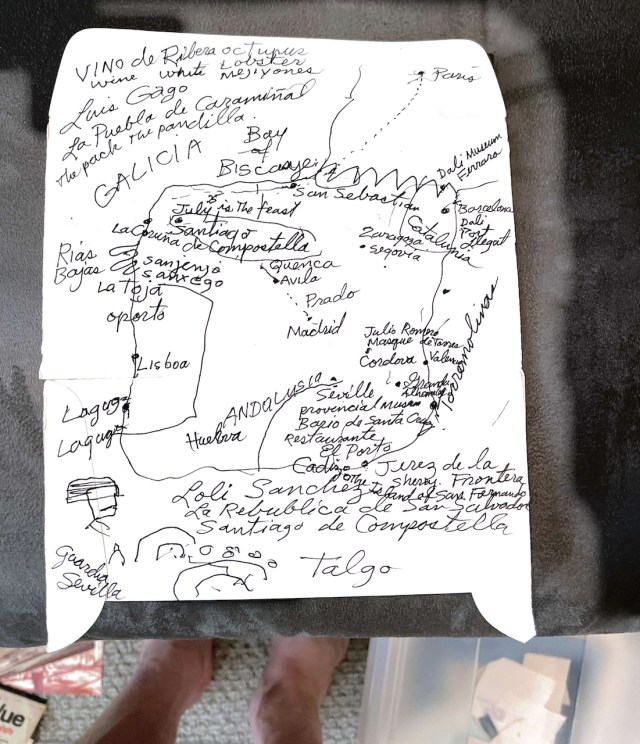 VINO de Ribera octupus
wine white Lobster
Mejiyones
Luis Gago
La Puebla de Caramiñal
the pack the pandilla.
GALICIA
Bay
of
Biscaye
Paris
Dali Museum
San Sebastian
Barcelona
Dali
Port
Catalunia
July is The feast
Santiago
de Compostella
La Coruña
Zaragoza
Segovia
Rias
Bajas
sanjenjo
La Toja
oporto
Quenca
Avila
Prado
Madrid
Torremolinas
Julio Romero
Masque de Torres
Cordova
Lisboa
Lagug
Lagug
ANDALusia
Huelva
Séville
provencial Museum
Bario de Santa Cruz
Restaurante
El Porto
Cadiz
Jerez de la
Frontera
Sherry
Island of San Fernando
Loli Sanchez
La Republica de San Salvador
Santiago de Compostella
Guardia
Sevilla
Talgo
lue